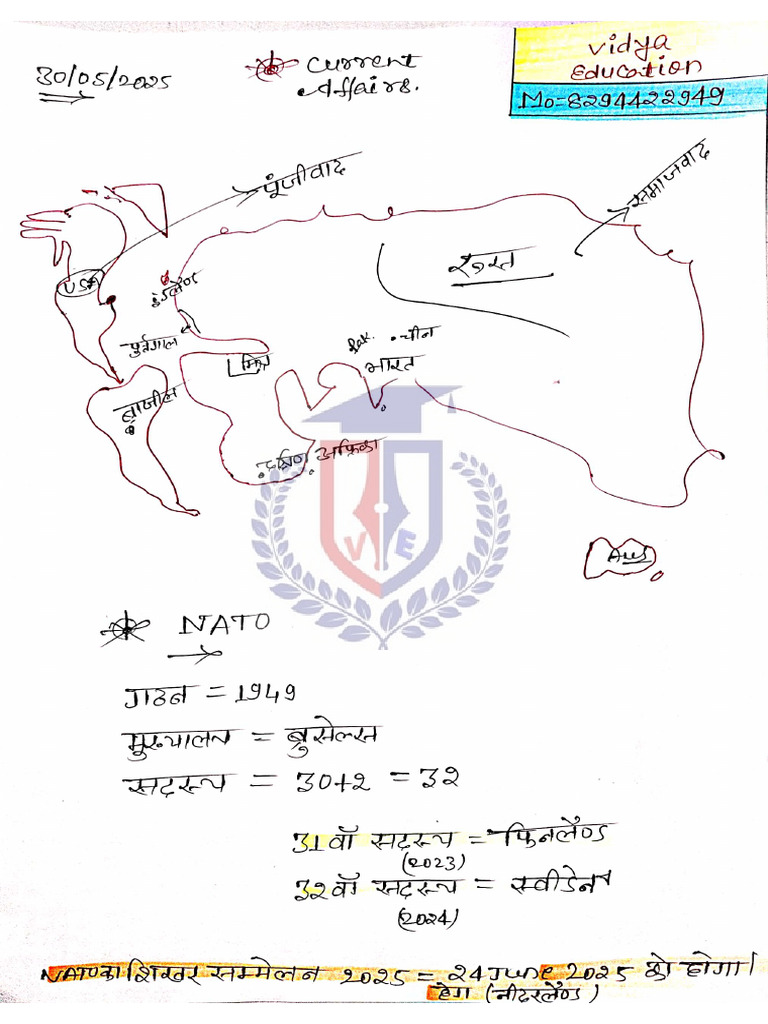 30/05/2025
Current
Affairs.
Vidya
Education
Mo-8294422949
पूंजीवाद
समाजवाद
USA
इंग्लैण्ड
रूस
पुर्तगाल
मिस्र
Pak.
चीन
भारत
ब्राजील
दक्षिण अफ्रिका
V E
Aus
NATO
गठन = 1949
मुख्यालय = ब्रुसेल्स
सदस्य = 30+2 = 32
31वाँ सदस्य = फिनलैण्ड
(2023)
32वाँ सदस्य = स्वीडेन
(2024)
NATO का शिखर सम्मेलन 2025 = 24 June 2025 को होगा।
हेग (नीदरलैण्ड)